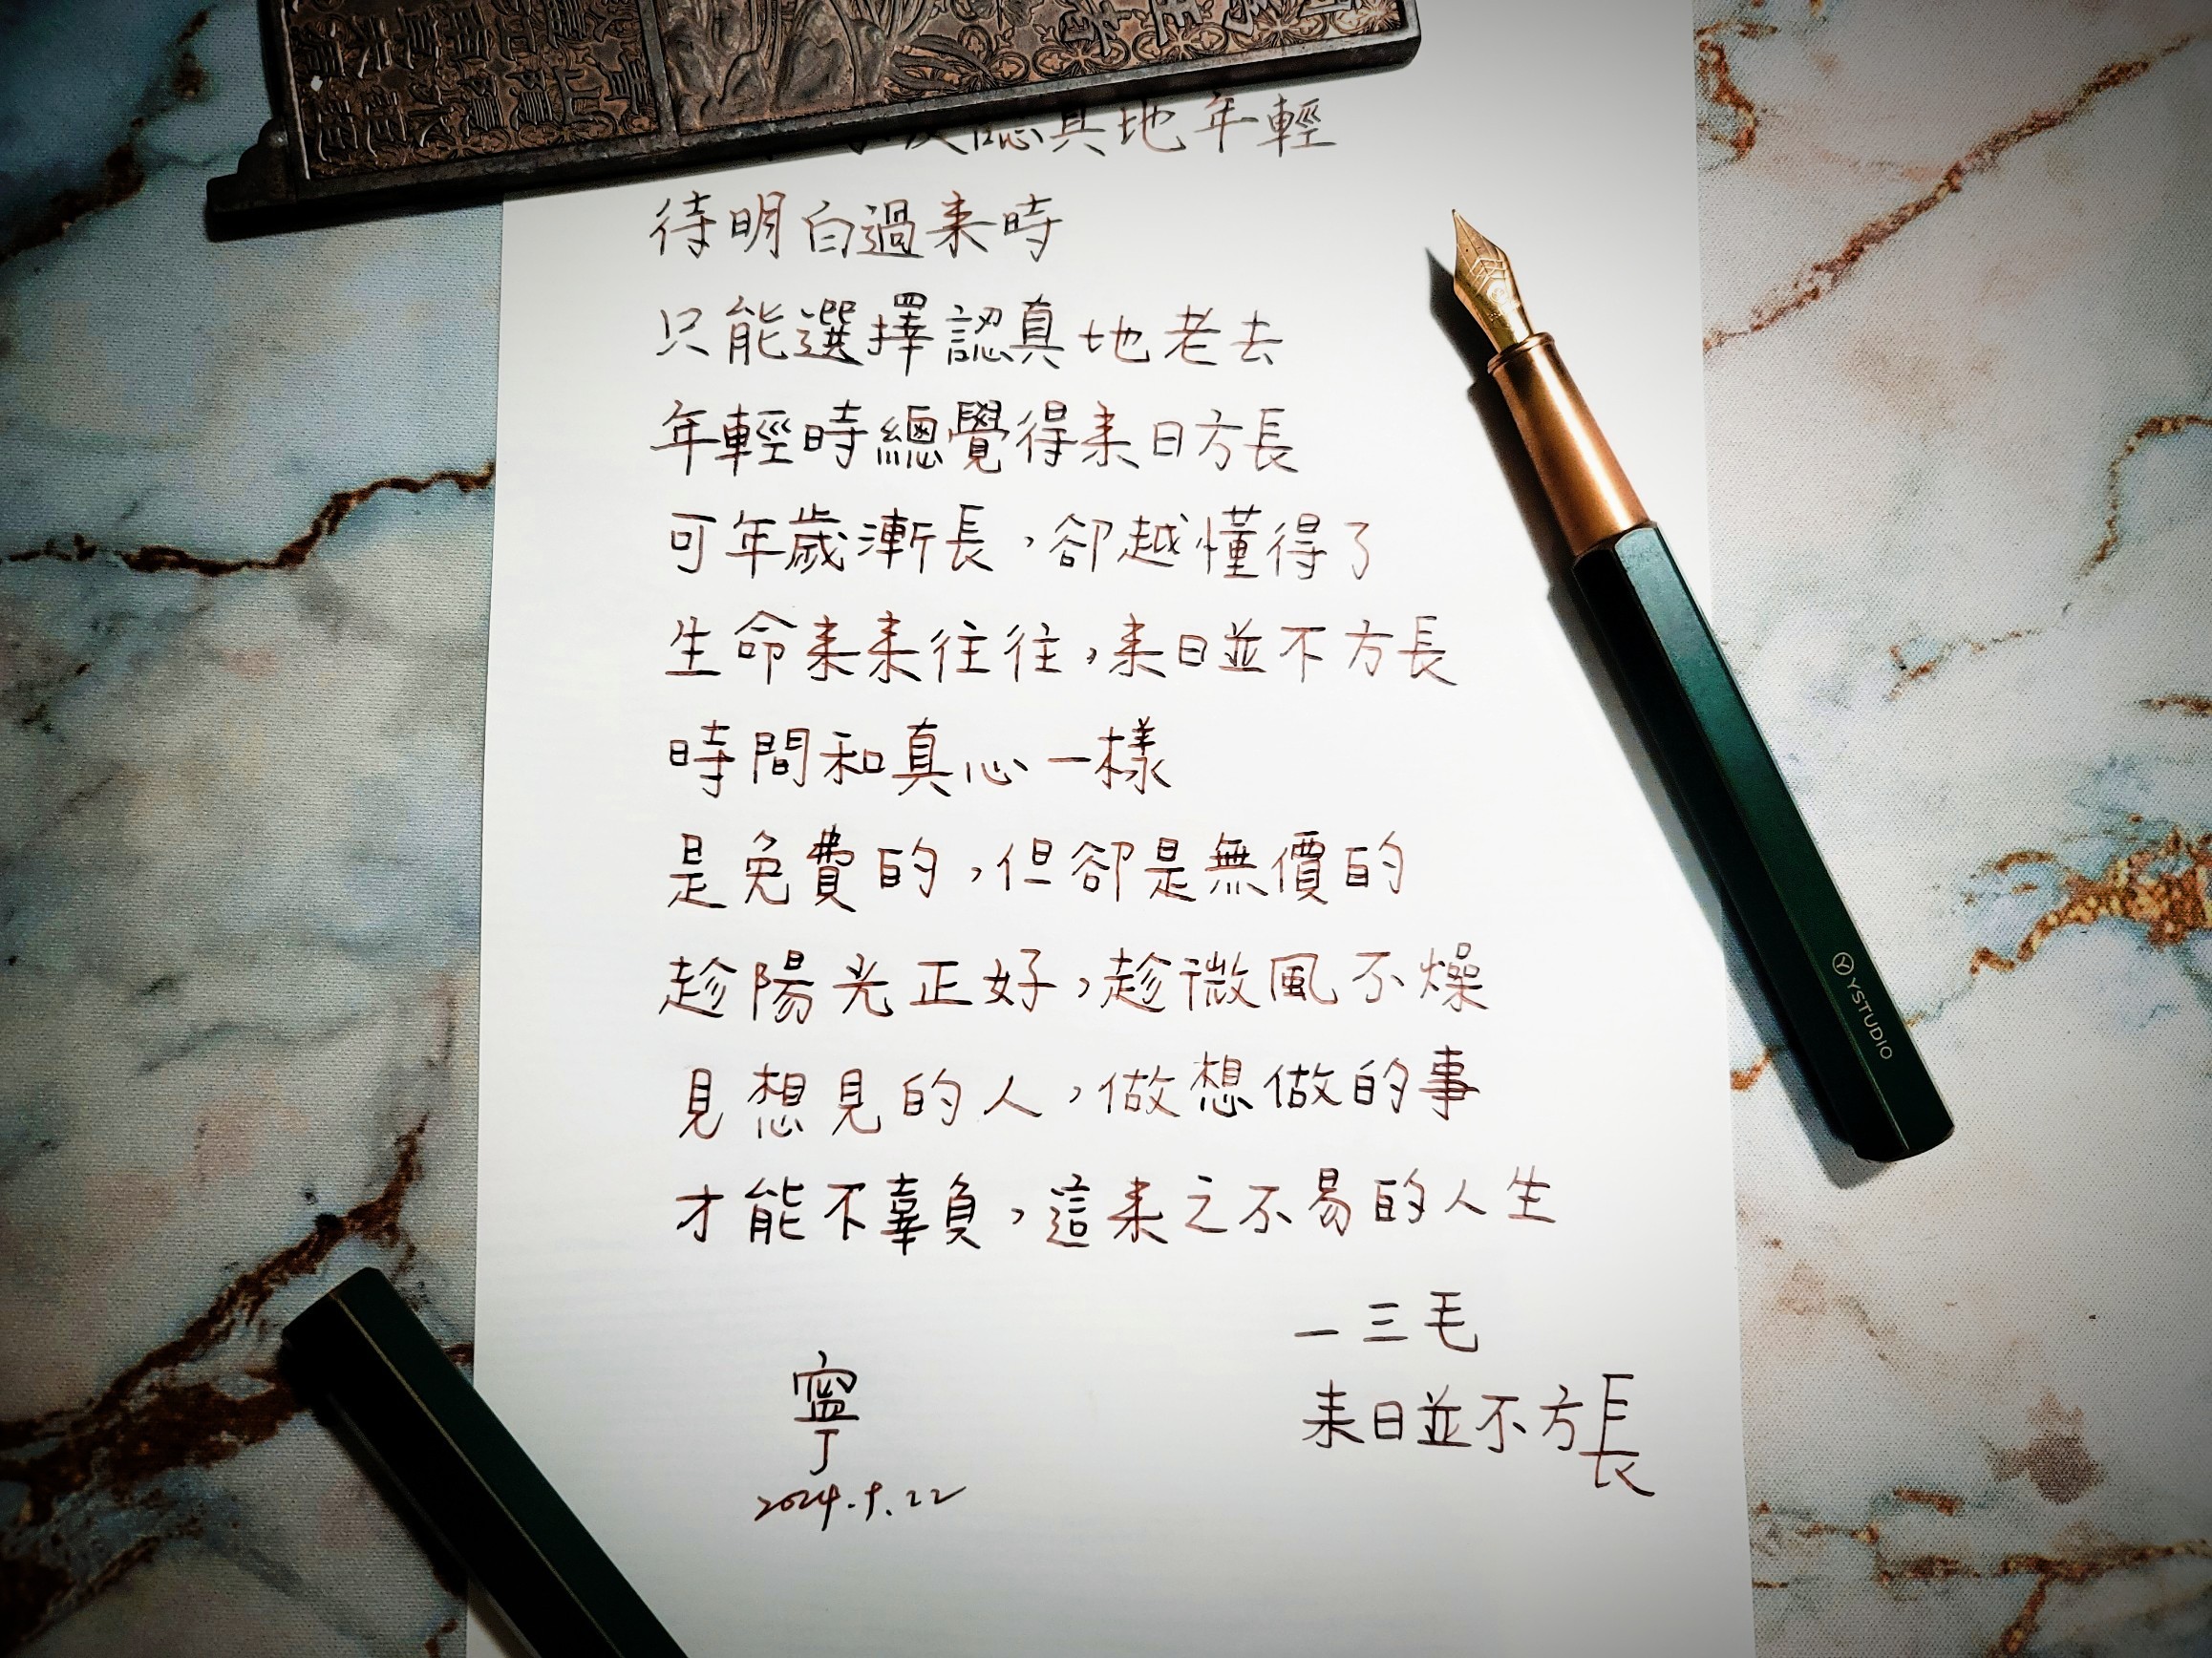 認真地年輕
待明白過来時
只能選擇認真地老去
年輕時總覺得来日方長
可年歲漸長，卻越懂得了
生命来来往往，来日並不方長
時間和真心一樣
是免費的，但卻是無價的
趁陽光正好，趁微風不燥
見想見的人，做想做的事
才能不辜負，這来之不易的人生
—三毛
来日並不方長
寧
2024.9.22
YSTUDIO